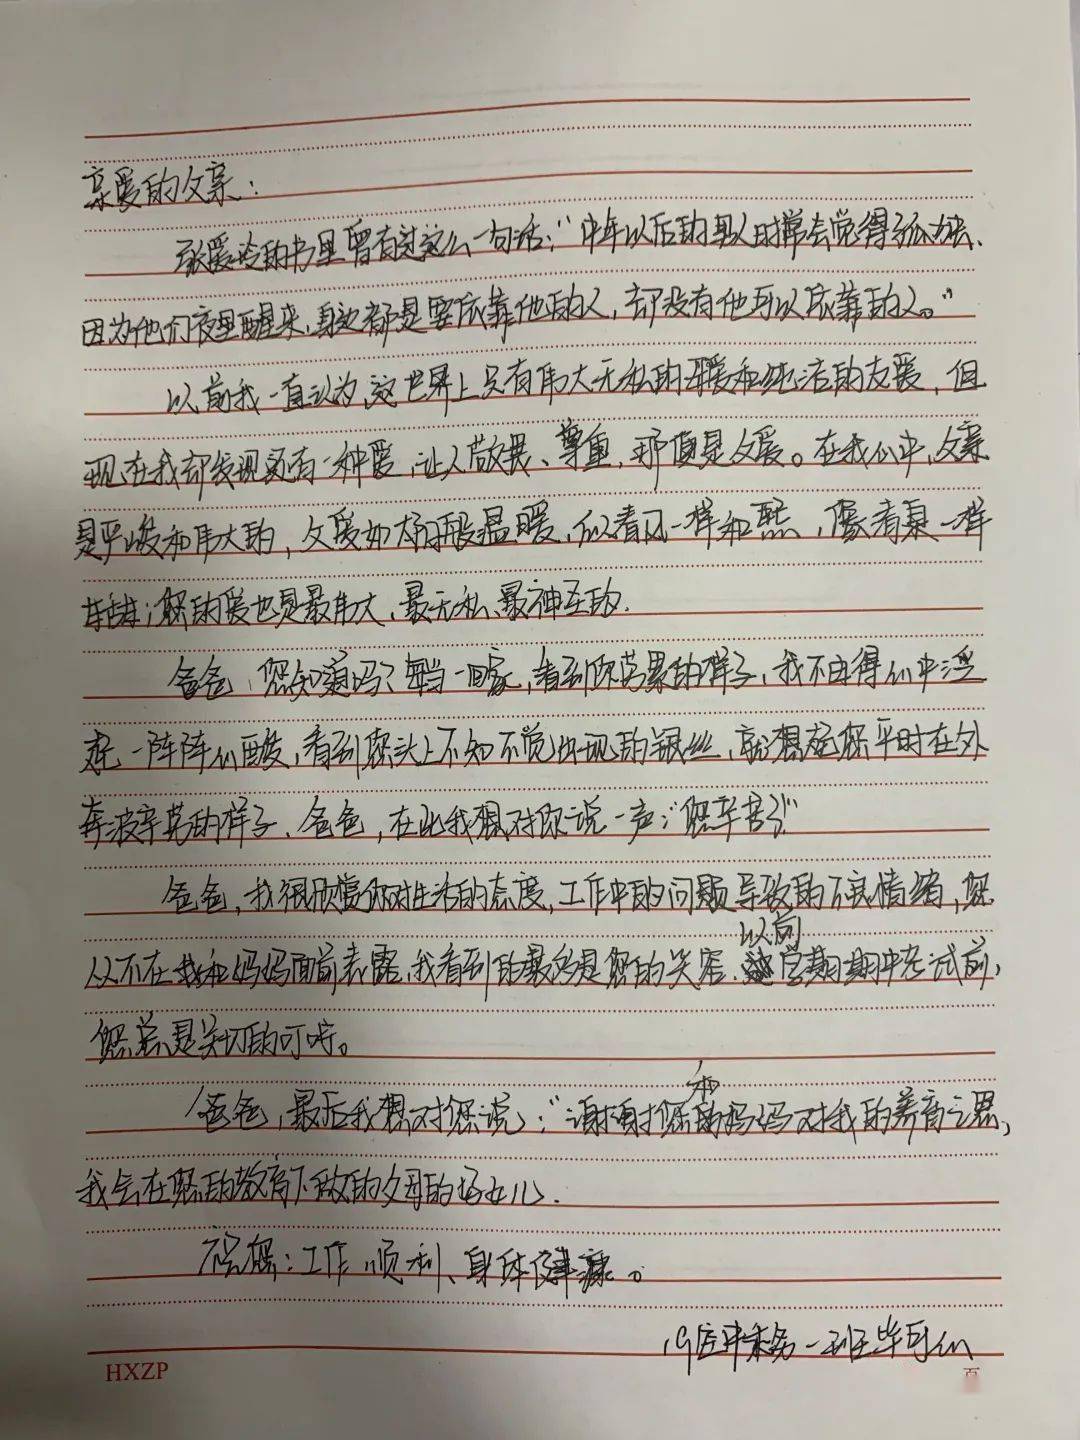 亲爱的父亲：
张爱玲的书里曾有过这么一句话："中年以后的男人时常会觉得孤独、
因为他们夜里醒来，身边都是要依靠他的人，却没有他可以依靠的人。"
以前我一直认为，这世界上只有伟大无私的母爱和纯洁的友爱，但
现在我却发现还有一种爱，让人敬畏、尊重，那便是父爱。在我心中，父亲
是严峻和伟大的，父爱如太阳般温暖，似春风一样和熙，像清泉一样
；您的爱也是最伟大、最无私、最神圣的.
爸爸，您知道吗？每当一回家，看到你劳累的样子，我不由得心中泛
起一阵阵心酸，看到您头上不知不觉出现的银丝，就想起您平时在外
奔波辛劳的样子、爸爸，在此我想对你说一声："您辛苦了"
爸爸，我很欣赏你对生活的态度，工作中的问题导致的不良情绪，您
从不在我和妈妈面前表露，我看到的最多是您的笑容.以前学期期中考试前，
您总是关切的叮咛。
爸爸，最后我想对您说："谢谢您和妈妈对我的养育之恩，
我会在您的教育下做的父母的好女儿.
祝您：工作顺利、身体健康。
19 一班毕可心
HXZP
页